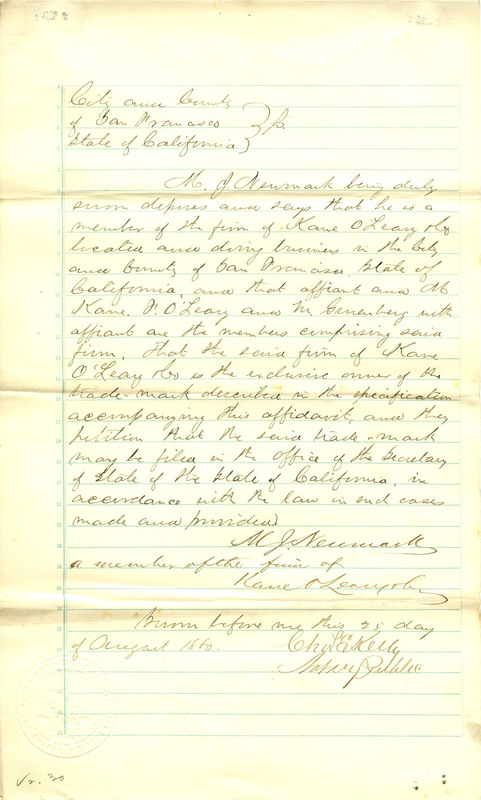 City and County
of San Francisco } ss.
State of California }
M. J. Newmark being duly
sworn deposes and says that he is a
member of the firm of Kane O'Leary & Co
located and doing business in the City
and County of San Francisco, State of
California, and that affiant and M
Kane, F. O'Leary and M. Greenberg with
affiant are the members comprising said
firm. That the said firm of Kane
O'Leary & Co is the exclusive owner of the
trade-mark described in the specification
accompanying this affidavit, and they
petition that the said trade-mark
may be filed in the Office of the Secretary
of State of the State of California, in
accordance with the law in such cases
made and provided
M. J. Newmark
a member of the firm of
Kane O'Leary & Co
Sworn before me this 25 day
of August 1880.
Chas E Kelly
Notary Public